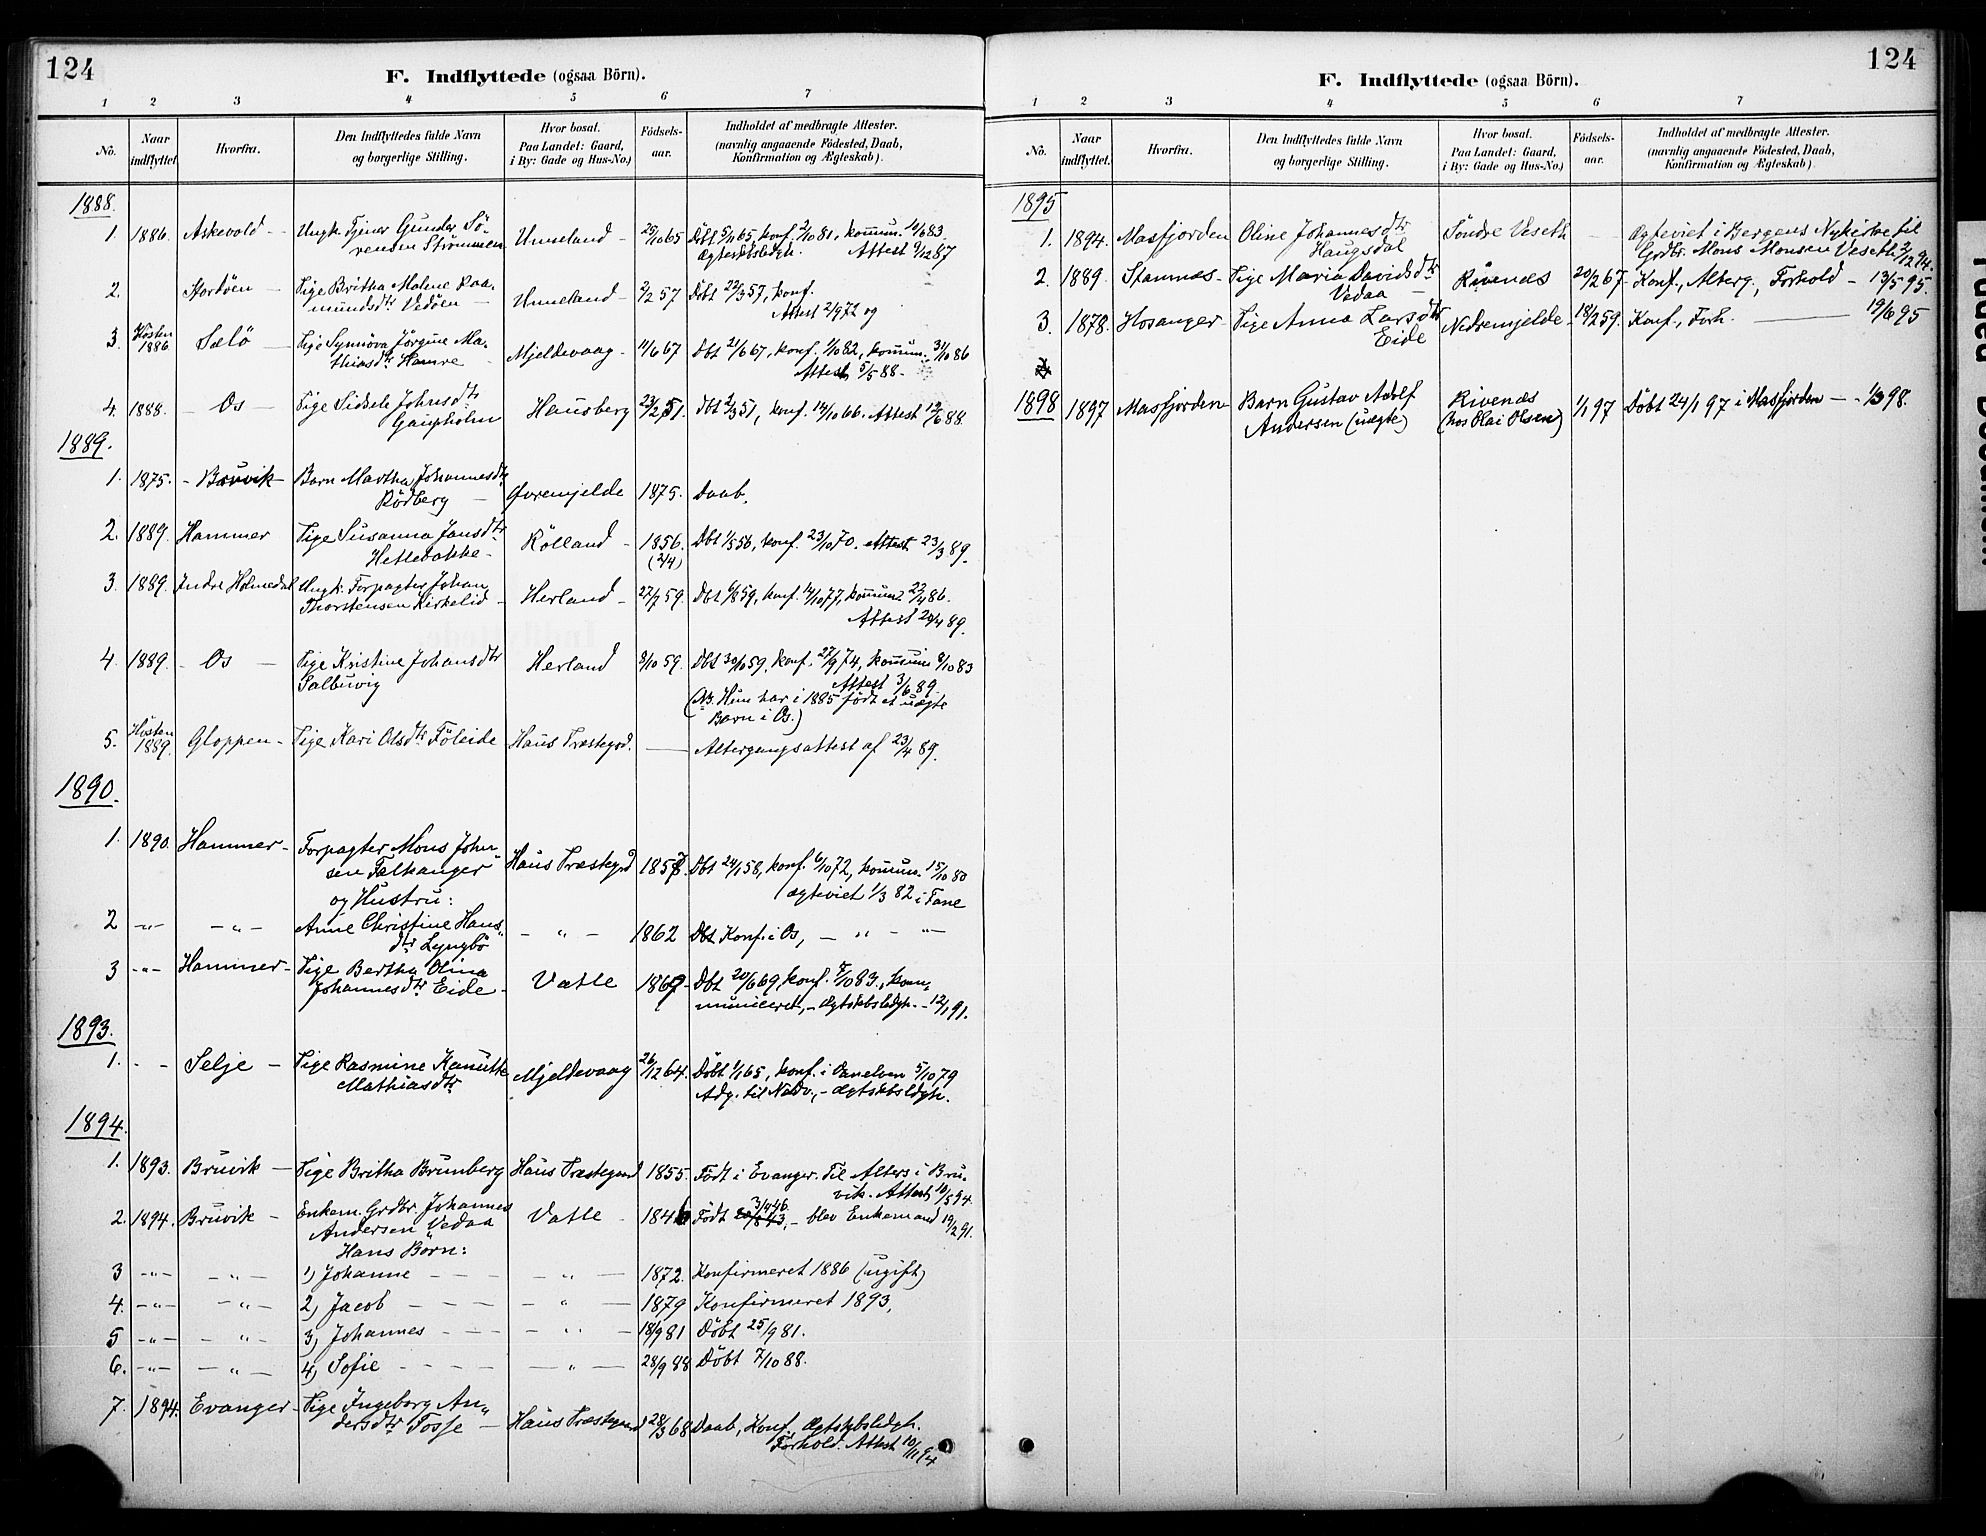 124
F. Indflyttede (ogsaa Börn).
1 2 3 4 5 6 7
No. Naar indflyttet. Hvorfra. Den Indflyttedes fulde Navn og borgerlige Stilling. Hvor bosat. Paa Landet: Gaard, i By: Gade og Hus-No.) Födsels-aar. Indholdet af medbragte Attester. (navnlig angaaende Födested, Daab, Konfirmation og Ægteskab).
1888.
1. 1886. Askevold - Ungk. Tjener Gunder Sö- Unneland - 25/10 65 Döbt 5/11 65, konf. 2/10 81, kommun. 14/6 83.
rensen Strömmen Ægteskbsledgh. Attest 9/12 87
2. Stordöen - Pige Britha Malene Raa- Unneland - 2/2 57 Döbt 22/3 57, konf.
mundsdtr Vedöen - Attest 2/9 72 og
3. Hösten 1886 Sælö - Pige Synnöva Jörgine Ma- Mjeldevaag - 11/6 67 Dbt 21/6 67, konf. 1/10 82, kommun. 31/10 86
thiasdtr Hamre - Attest 5/5 88.
4. 1888. - Os - Pige Sidsele Johnsdtr Hausberg 23/2 51. Dbt 2/3 51, konf. 14/10 66. Attest 12/6 88.
Gaupholm
1889.
1. 1875. - Bruvik - Barn Martha Johannesdtr Övremjelde 1875. Daab.
Rödberg -
2. 1889. Hammer Pige Susanna Jansdtr Rölland - 1856. (2/4) Dbt 1/5 56, konf. 23/10 70. Attest 23/3 89.
Hettebakke -
3. 1889. Indre Holmedal Ungk. Forpagter Johan Herland - 27/7 59. Dbt 6/8 59, konf. 14/10 77, kommun. 22/4 86.
Thorstensen Kirkelid - Attest 24/4 89.
4. 1889. - Os - Pige Kristine Johansdtr Herland 8/10 59. Dbt 30/10 59, konf. 27/9 74, kommun 8/10 83
Salbuvig Attest 3/6 89.
(NB. Hun har i 1885 födt et uægte
Barn i Os.)
5. Hösten 1889. Gloppen - Pige Kari Olsdtr Föleide Haus Præstegrd. - Altergangsattest af 23/4 89.
1890.
1. 1890. Hammer - Forpagter Mons John- Haus Præstegrd 1857 Dbt 24/1 58, konf. 6/10 72, kommun. 15/10 80
sen Fælhanger ægteviet 1/3 82 i Fane
og Hustru:
2 -"- - " - Anne Christine Hans- - " - 1862 Dbt Konf i Os, - " - -"-
dtr Lyngbö
3 -"- Hammer - Pige Bertha Olina Vatle 1869 - Dbt 20/6 69, konf. 7/10 83., kom-
Johannesdtr Eide - municeret, - ægtskbsledgh. - 12/1 91.
1893.
1. - - Selje - Pige Rasmine Kanutte Mjeldevaag 26/12 64. Döbt 1/1 65, konf. i Vanelven 5/10 79
Mathiasdtr Adg. til Nadv., - ægtskbsldgh.
1894.
1. 1893. Bruvik - Pige Britha Brunberg Haus Præstegaard 1855. Födt i Evanger. Til Alters i Bru-
vik. Attest 10/5 94.
2. 1894. Bruvik - Enkem. Grdbr. Johannes Vatle - 1846 Födt 3/4 46, - blev Enkemand 19/2 91.
Andersen Vedaa
Hans Börn:
3 -"- - " - 1) Johanne - - - - " - 1872. Konfirmeret 1886 (ugift)
4. -"- - " - 2) Jacob - - - - " - 1879 Konfirmeret 1893.
5 -"- - " - 3) Johannes - - - - " - 18/9 81 Döbt 25/9 81.
6. -"- - " - 4) Sofie - - - - - " - 28/9 88 Döbt 7/10 88.
7. 1894. Evanger - Pige Ingeborg An- Haus Præstegaard 28/3 68 Daab, Konf, ægtskbsledgh.
dersdtr Fosse - Forhold. Attest 10/11 94
124
F. Indflyttede (ogsaa Börn).
1 2 3 4 5 6 7
No. Naar indflyttet. Hvorfra. Den Indflyttedes fulde Navn og borgerlige Stilling. Hvor bosat. Paa Landet: Gaard, i By: Gade og Hus-No.) Födsels-aar. Indholdet af medbragte Attester. (navnlig angaaende Födested, Daab, Konfirmation og Ægteskab).
1895
1. 1894. Masfjorden Oline Johannesdtr Söndre Veseth - Ægteviet i Bergens Nykirke til
Haugsdal Grdbr. Mons Monsen Veseth 2/12 94.
2. 1889. Stamnæs - Pige Maria Davidsdtr Rivenæs 20/2 67 - Konf., Alterg., Forhold - 13/5 95.
Vedaa -
3. 1878. Hosanger - Pige Anna Larsdtr Nedremjelde - 18/2 59. Konf., Forh. - 19/6 95
Eide
1898 1897 Masfjorden - Barn Gustav Adolf Rivenæs 1/1 97 Döbt 24/1 97 i Masfjorden - - 1/3 98.
Andersen (uægte) (hos Olai Olsen)